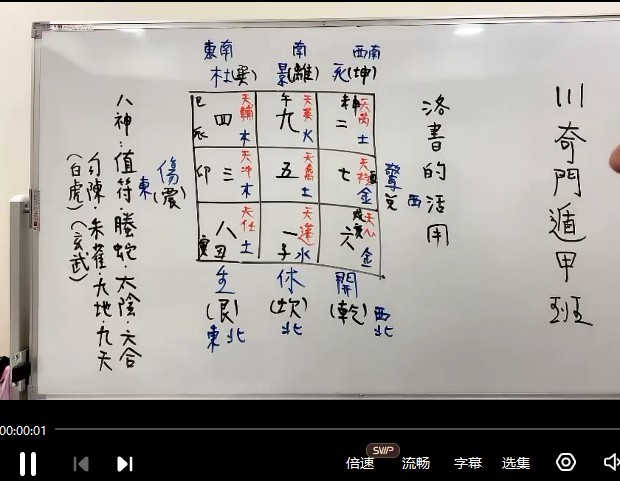 川奇門遁甲班
洛書的活用
東南 南 西南
杜(巽) 景(離) 死(坤)
巳 四 天輔 午 九 天英 未申 二 天芮
辰 木 火 土
傷 卯 三 天冲 五 天禽 七 天柱 酉 驚
東(震) 木 土 金 兌 西
八 天任 一 天蓬 六 天心
寅 丑 土 子 水 戌亥 金
生 休 開
(艮) (坎) (乾)西
東北 北 北
八神:值符·螣蛇·太陰·六合
勾陳·朱雀·九地·九天
(白虎)(玄武)
00:00:01
倍速 SVIP 流畅 字幕 选集